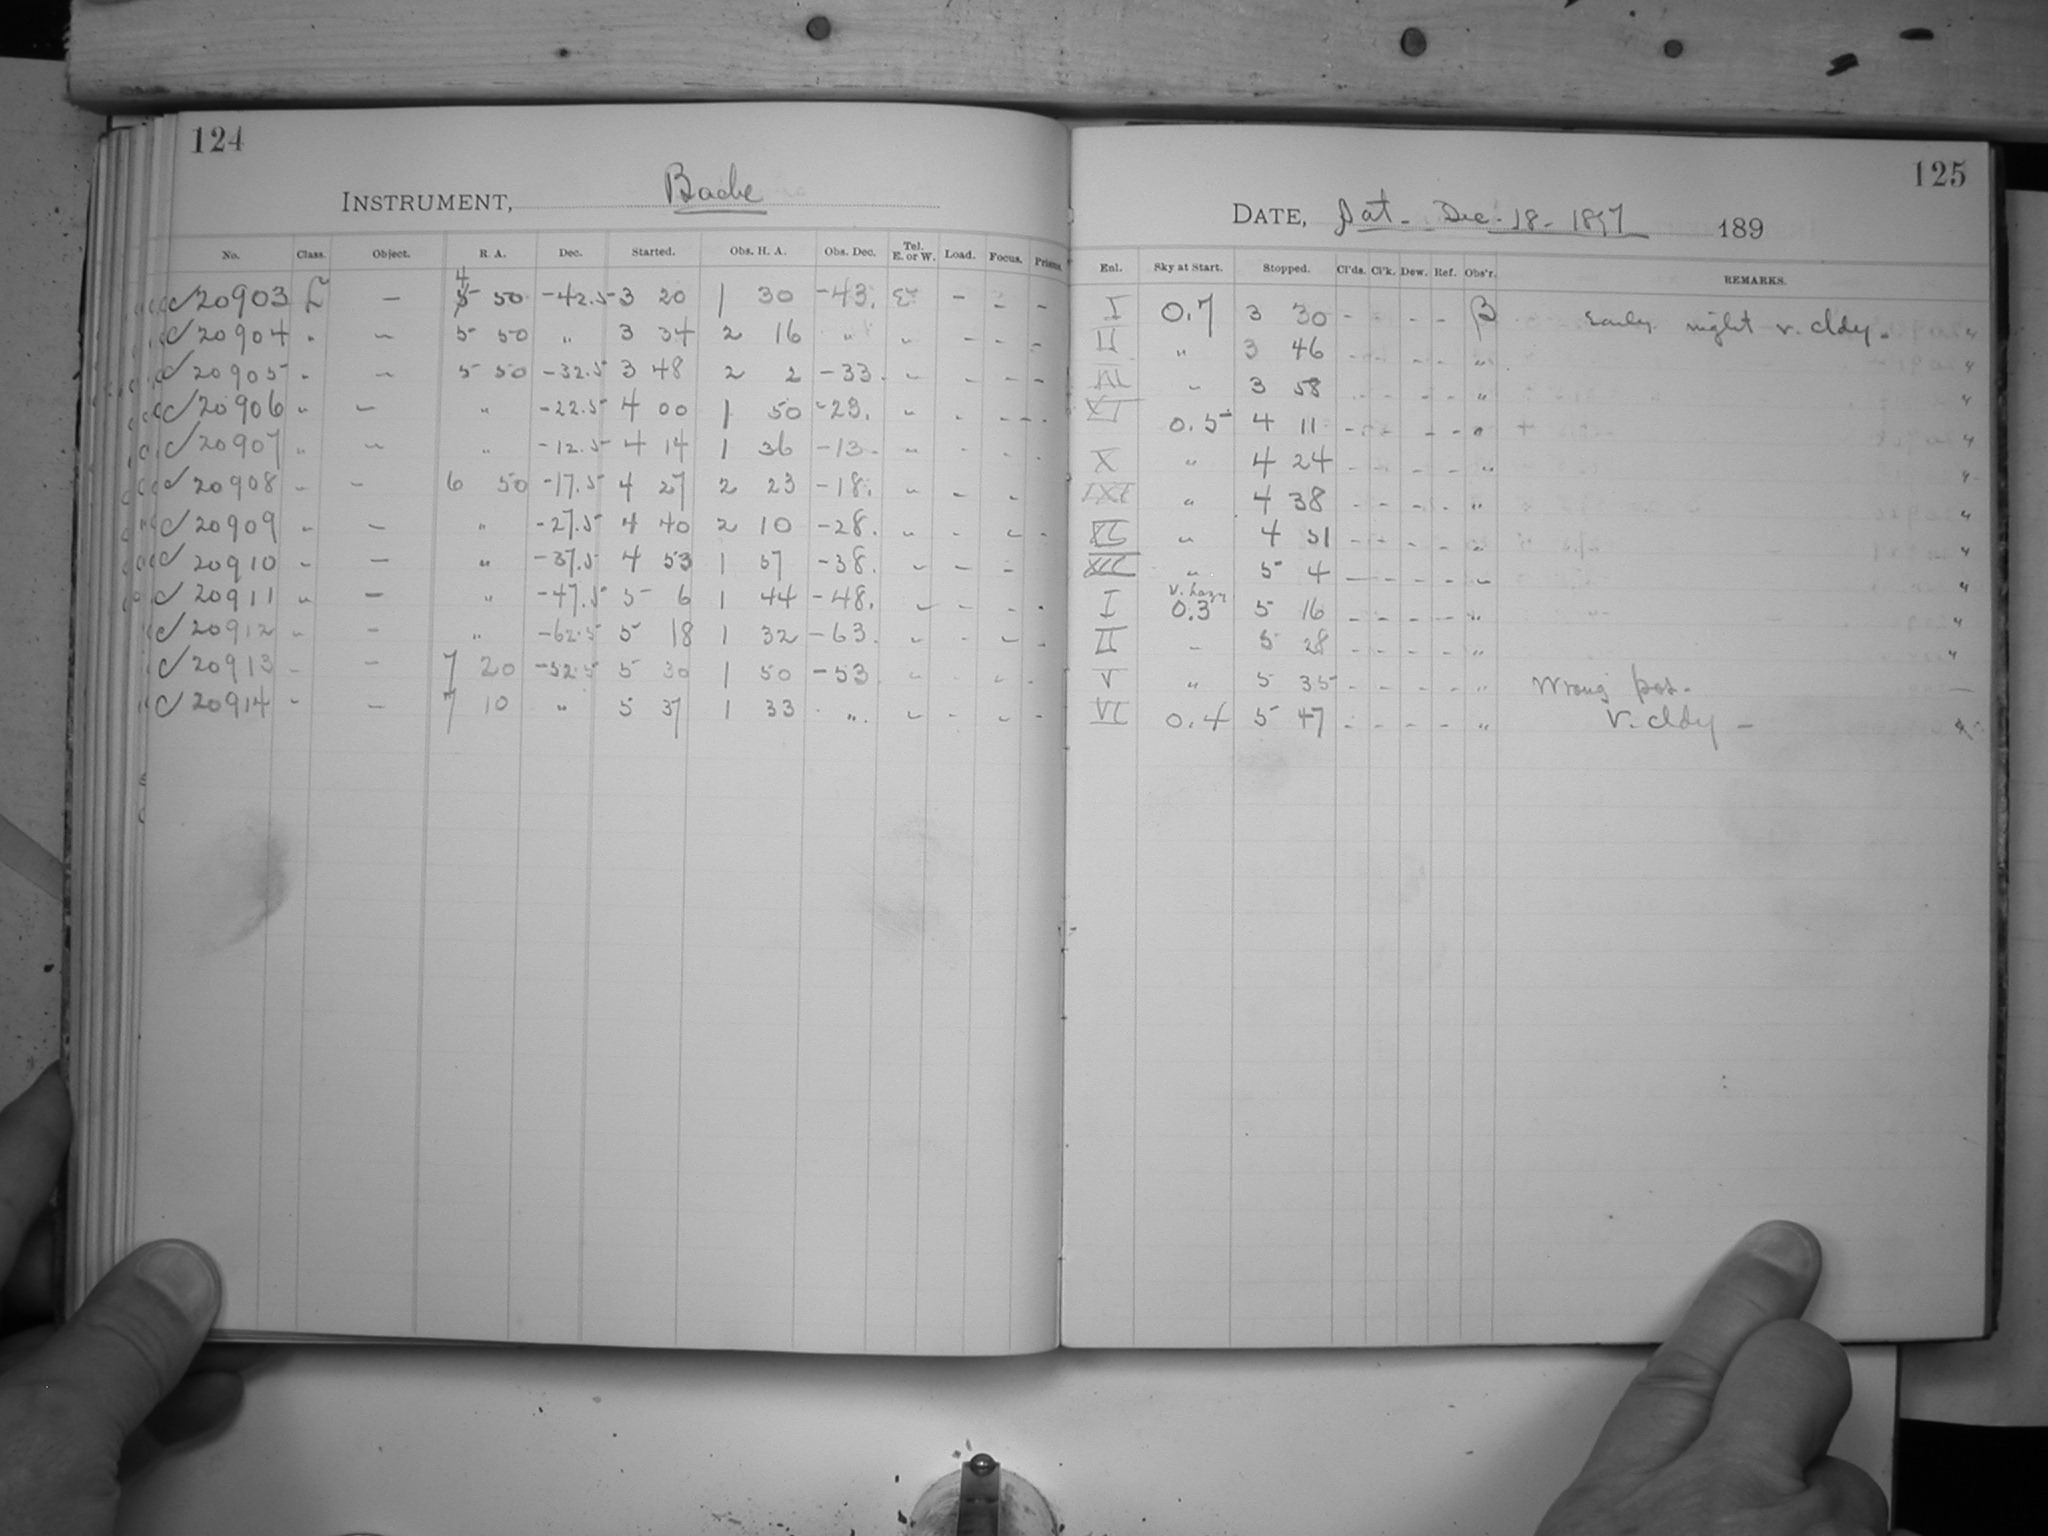 124
INSTRUMENT, Bache
No. Class. Object. R. A. Dec. Started. Obs. H. A. Obs. Dec. Tel. E. or W. Load. Focus. Prisms.
20903 L — 4 5 50 -42.5 3 20 1 30 -43. E - - -
20904 " — 5 50 " 3 34 2 16 " " - - -
20905 " — 5 50 -32.5 3 48 2 2 -33. " - - -
20906 " — " -22.5 4 00 1 50 -23. " - - -
20907 " — " -12.5 4 14 1 36 -13. " - - -
20908 " — 6 50 -17.5 4 27 2 23 -18. " - -
20909 " — " -27.5 4 40 2 10 -28. " - - -
20910 " — " -37.5 4 53 1 57 -38. " - -
20911 " — " -47.5 5 6 1 44 -48. " - - -
20912 " — " -62.5 5 18 1 32 -63. " - - -
20913 " — 7 20 -52.5 5 30 1 50 -53. " - - -
20914 " — 7 10 " 5 37 1 33 " " - - -
125
DATE, Sat. Dec. 18 - 1897 189
Enl. Sky at Start. Stopped. Cl'ds. Cl'k. Dew. Ref. Obs'r. REMARKS.
I 0.7 3 30 - - - - B Early night v. cldy. "
II " 3 46 - - - - " "
III " 3 58 - - - - " "
0.5 4 11 - - - - " "
X " 4 24 - - - - " "
" 4 38 - - - - " "
" 4 51 - - - - " "
" 5 4 - - - - " "
I v. hazy 0.3 5 16 - - - - " "
II " 5 28 - - - - " "
V " 5 35 - - - - " Wrong pos. —
VI 0.4 5 47 - - - - " V. cldy - "